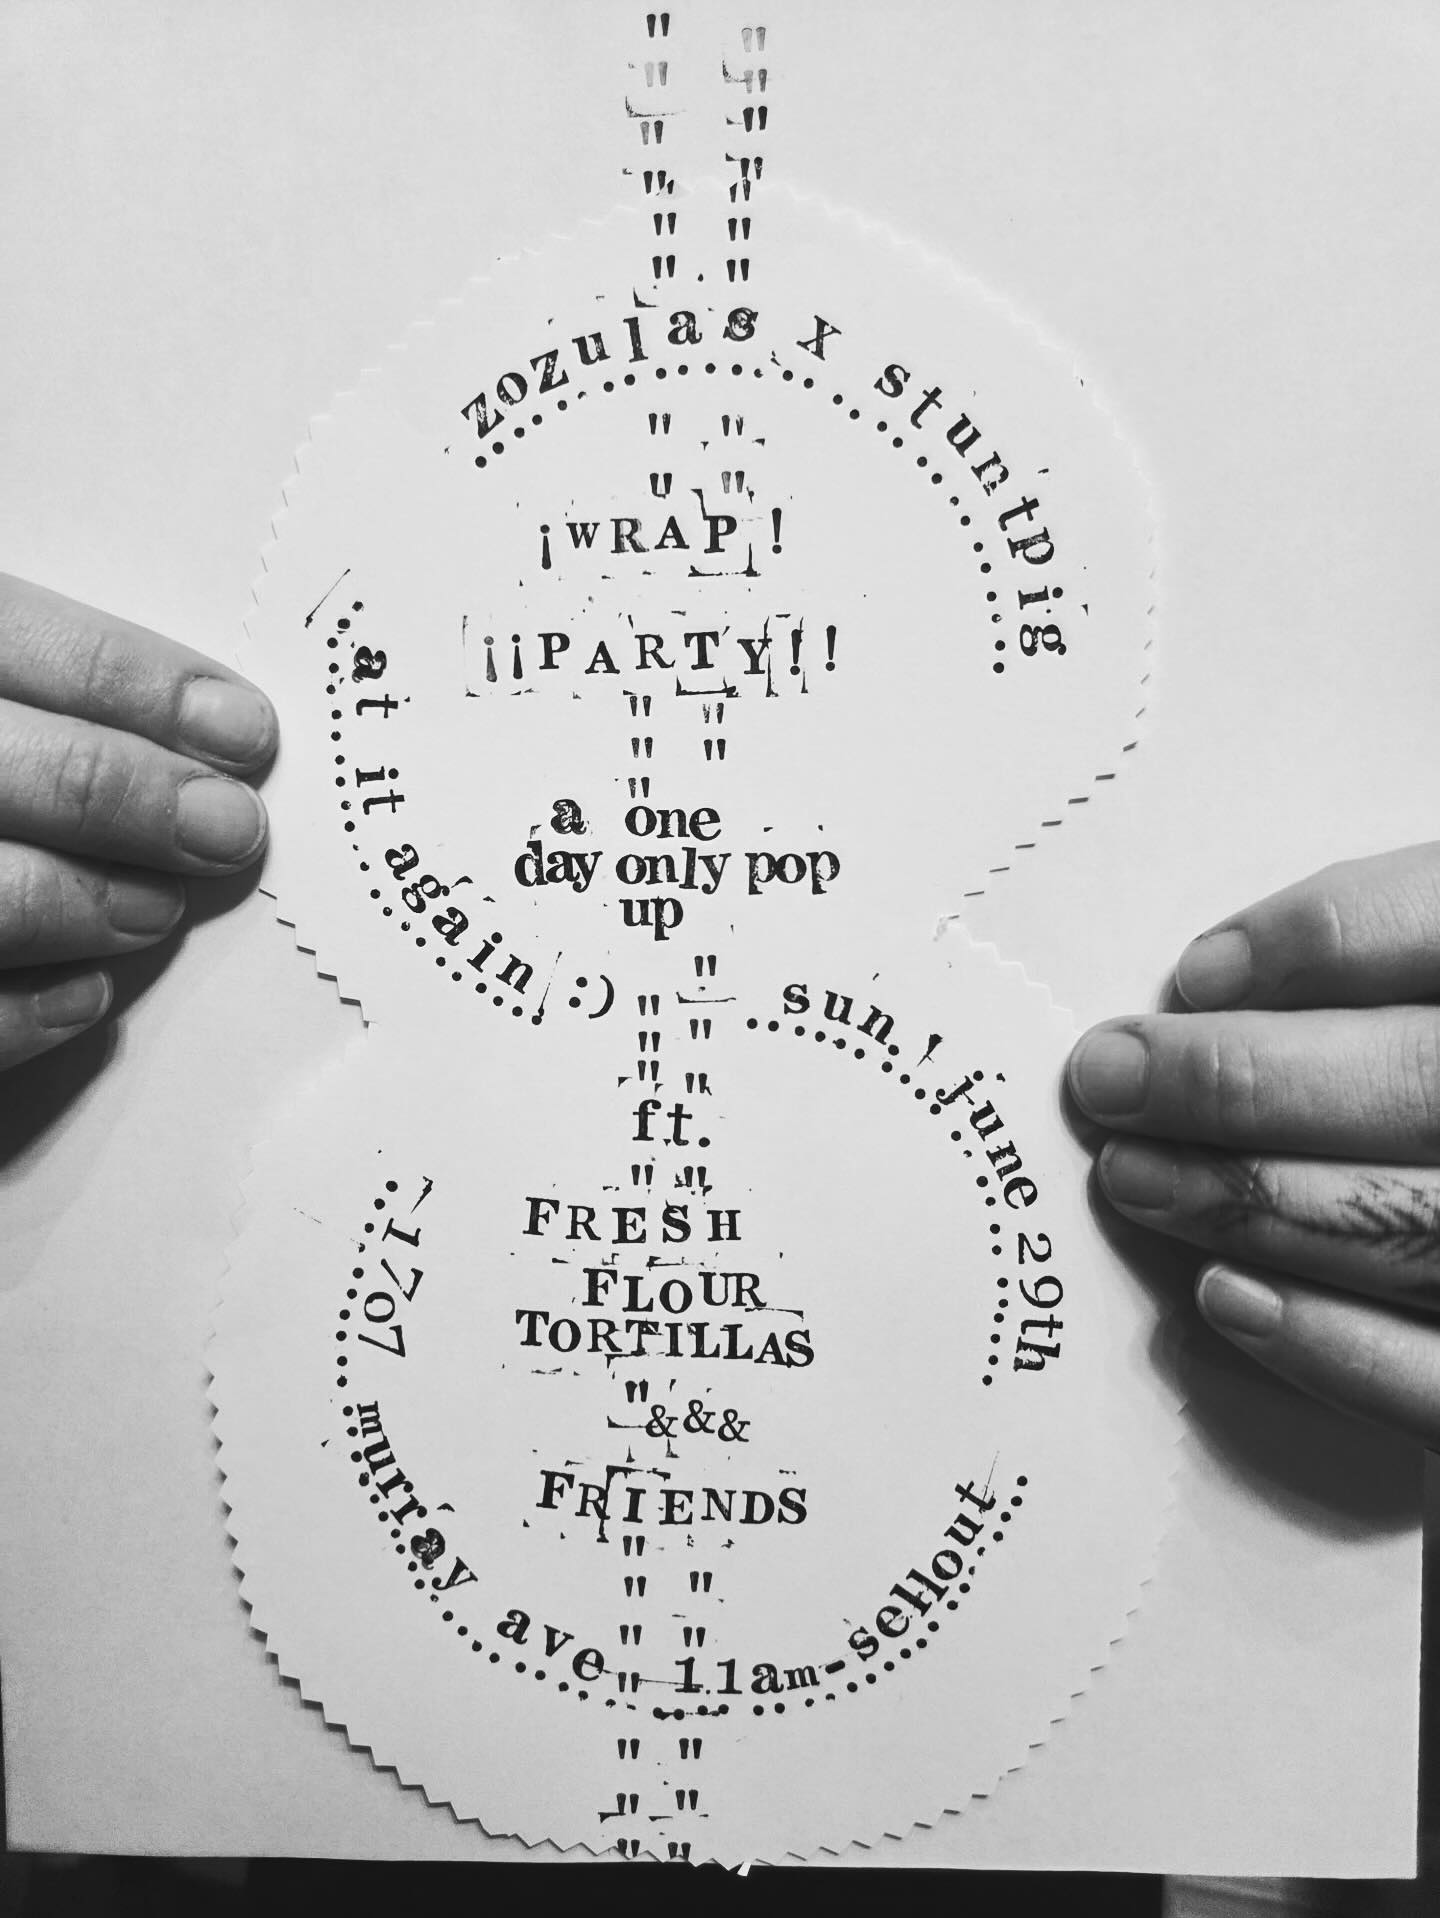 zozulas x stuntpig
¡WRAP!
¡¡PARTY!!
at it again :)
a one
day only pop
up
sun. ! june 29th
ft.
FRESH
FLOUR
TORTILLAS
&&&
FRIENDS
1707 murray ave
11am-sellout